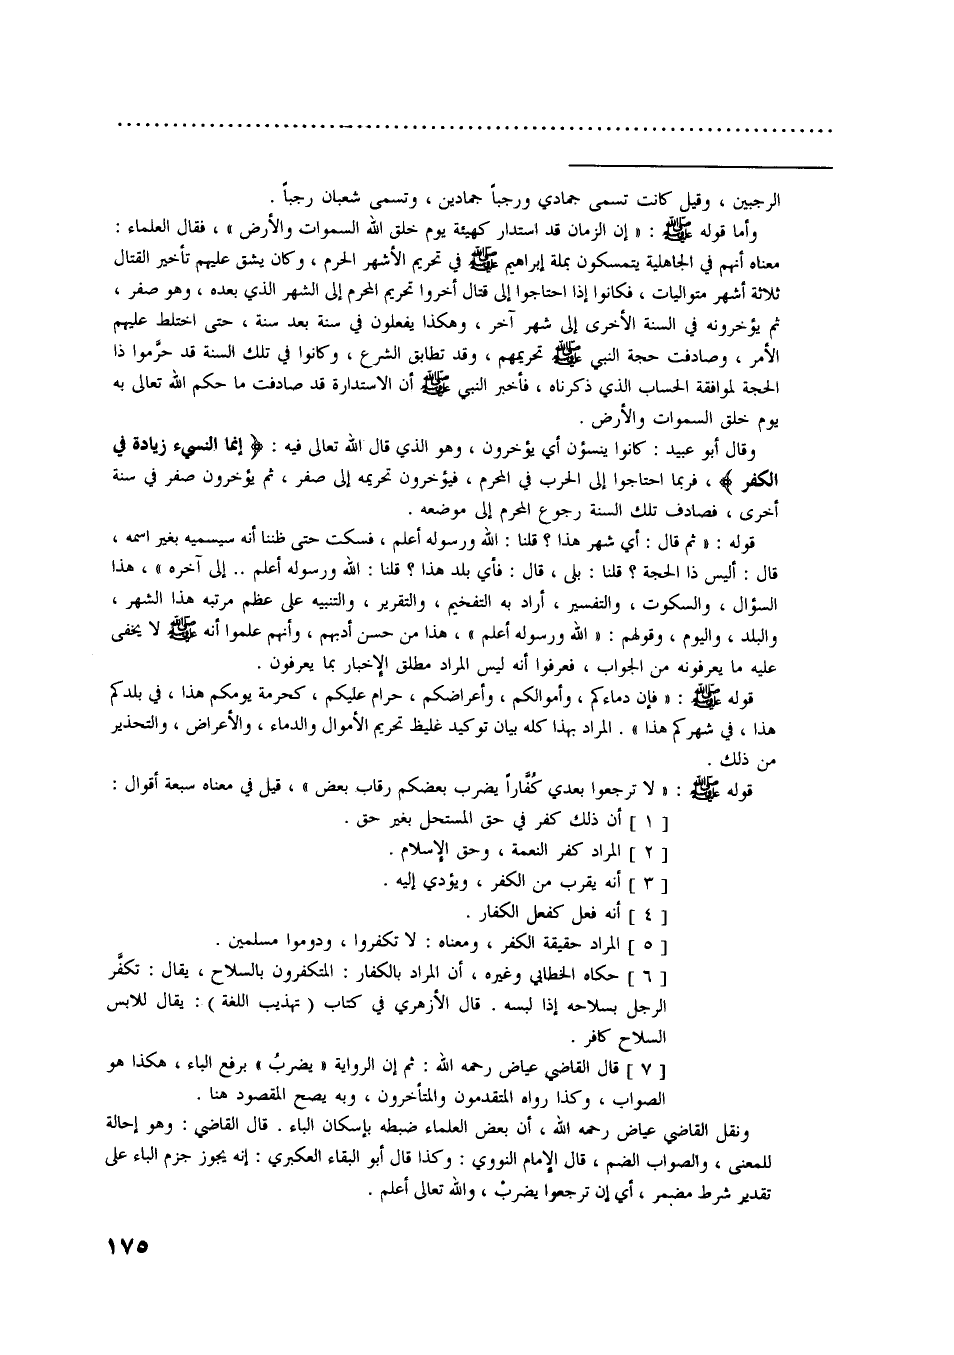 الرجبين ، وقيل كانت تسمى جمادي ورجباً جمادين ، وتسمى شعبان رجباً .
وأما قوله ﷺ : « إن الزمان قد استدار كهيئة يوم خلق الله السموات والأرض » ، فقال العلماء :
معناه أنهم في الجاهلية يتمسكون بملة إبراهيم ﷺ في تحريم الأشهر الحرم ، وكان يشق عليهم تأخير القتال
ثلاثة أشهر متواليات ، فكانوا إذا احتاجوا إلى قتال أخروا تحريم المحرم إلى الشهر الذي بعده ، وهو صفر ،
ثم يؤخرونه في السنة الأخرى إلى شهر آخر ، وهكذا يفعلون في سنة بعد سنة ، حتى اختلط عليهم
الأمر ، وصادفت حجة النبي ﷺ تحريمهم ، وقد تطابق الشرع ، وكانوا في تلك السنة قد حرَّموا ذا
الحجة لموافقة الحساب الذي ذكرناه ، فأخبر النبي ﷺ أن الاستدارة قد صادفت ما حكم الله تعالى به
يوم خلق السموات والأرض .
وقال أبو عبيد : كانوا ينسؤن أي يؤخرون ، وهو الذي قال الله تعالى فيه : ﴿ إنما النسيء زيادة في
الكفر ﴾ ، فربما احتاجوا إلى الحرب في المحرم ، فيؤخرون تحريمه إلى صفر ، ثم يؤخرون صفر في سنة
أخرى ، فصادف تلك السنة رجوع المحرم إلى موضعه .
قوله : « ثم قال : أي شهر هذا ؟ قلنا : الله ورسوله أعلم ، فسكت حتى ظننا أنه سيسميه بغير اسمه ،
قال : أليس ذا الحجة ؟ قلنا : بلى ، قال : فأي بلد هذا ؟ قلنا : الله ورسوله أعلم .. إلى آخره » ، هذا
السؤال ، والسكوت ، والتفسير ، أراد به التفخيم ، والتقرير ، والتنبيه على عظم مرتبه هذا الشهر ،
والبلد ، واليوم ، وقولهم : « الله ورسوله أعلم » ، هذا من حسن أدبهم ، وأنهم علموا أنه ﷺ لا يخفى
عليه ما يعرفونه من الجواب ، فعرفوا أنه ليس المراد مطلق الإخبار بما يعرفون .
قوله ﷺ : « فإن دماءكم ، وأموالكم ، وأعراضكم ، حرام عليكم ، كحرمة يومكم هذا ، في بلدكم
هذا ، في شهركم هذا » . المراد بهذا كله بيان توكيد غليظ تحريم الأموال والدماء ، والأعراض ، والتحذير
من ذلك .
قوله ﷺ : « لا ترجعوا بعدي كُفَّاراً يضرب بعضكم رقاب بعض » ، قيل في معناه سبعة أقوال :
[ ١ ] أن ذلك كفر في حق المستحل بغير حق .
[ ٢ ] المراد كفر النعمة ، وحق الإسلام .
[ ٣ ] أنه يقرب من الكفر ، ويؤدي إليه .
[ ٤ ] أنه فعل كفعل الكفار .
[ ٥ ] المراد حقيقة الكفر ، ومعناه : لا تكفروا ، ودوموا مسلمين .
[ ٦ ] حكاه الخطابي وغيره ، أن المراد بالكفار : المتكفرون بالسلاح ، يقال : تكفَّر
الرجل بسلاحه إذا لبسه . قال الأزهري في كتاب ( تهذيب اللغة ) : يقال للابس
السلاح كافر .
[ ٧ ] قال القاضي عياض رحمه الله : ثم إن الرواية « يضربُ » برفع الباء ، هكذا هو
الصواب ، وكذا رواه المتقدمون والمتأخرون ، وبه يصح المقصود هنا .
ونقل القاضي عياض رحمه الله ، أن بعض العلماء ضبطه بإسكان الباء . قال القاضي : وهو إحالة
للمعنى ، والصواب الضم ، قال الإمام النووي : وكذا قال أبو البقاء العكبري : إنه يجوز جزم الباء على
تقدير شرط مضمر ، أي إن ترجعوا يضربْ ، والله تعالى أعلم .
١٧٥